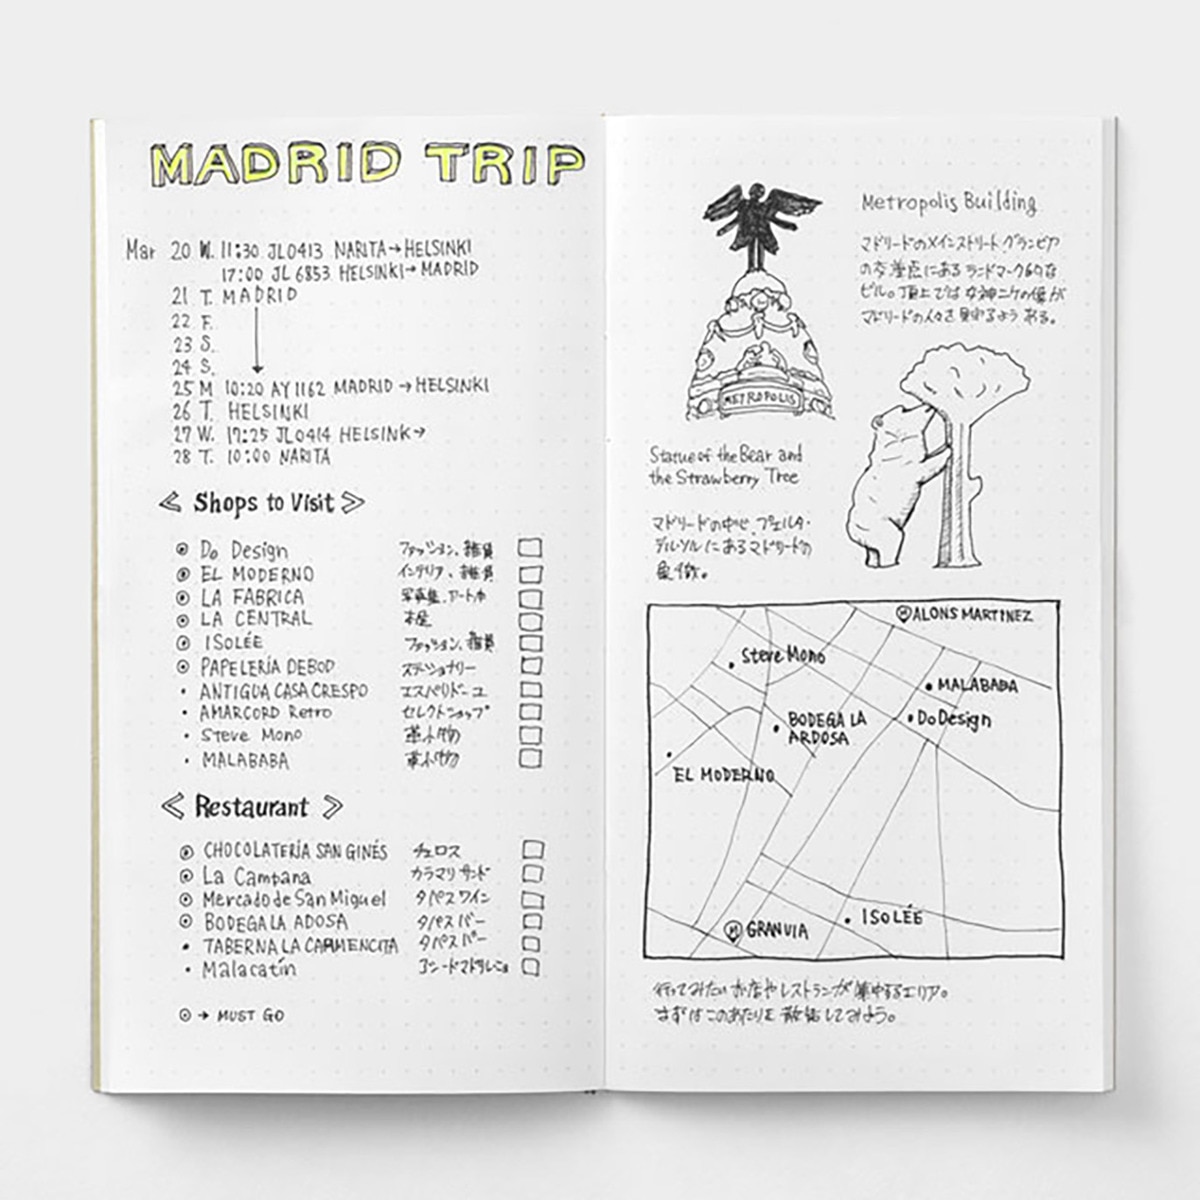 MADRID TRIP
Mar 20 W. 11:30 JL0413 NARITA→HELSINKI
17:00 JL6853 HELSINKI→MADRID
21 T. MADRID
22 F.
23 S.
24 S.
25 M 10:20 AY1162 MADRID→HELSINKI
26 T. HELSINKI
27 W. 17:25 JL0414 HELSINK→
28 T. 10:00 NARITA
≪ Shops to Visit ≫
◉ Do Design ファッション、雑貨 □
◉ EL MODERNO インテリア、雑貨 □
◉ LA FABRICA 写真集、アート本 □
◉ LA CENTRAL 本屋 □
◉ ISOLÉE ファッション、雑貨 □
◉ PAPELERÍA DEBOD ステーショナリー □
• ANTIGUA CASA CRESPO エスパドリーユ □
• AMARCORD Retro セレクトショップ □
• Steve Mono 革小物 □
• MALABABA 革小物 □
≪ Restaurant ≫
◉ CHOCOLATERÍA SAN GINÉS チュロス □
◉ La Campana カラマリサンド □
◉ Mercado de San Miguel タパス ワイン □
◉ BODEGA LA ADOSA タパス バー □
• TABERNA LA CARMENCITA タパス バー □
• Malacatín コシードマドリレーニョ □
◉ → MUST GO
Metropolis Building
マドリードのメインストリート、グランビア
の交差点にあるランドマーク的な
ビル。頂上では女神ニケの像が
マドリードの人々を見守るようある。
METROPOLIS
Statue of the Bear and
the Strawberry Tree
マドリードの中心、プェルタ・
デル・ソルにあるマドリードの
象徴。
ALONS MARTINEZ
Steve Mono
MALABABA
BODEGA LA
ARDOSA
Do Design
EL MODERNO
ISOLÉE
GRANVIA
行ってみたいお店やレストランが集中するエリア。
まずはこのあたりを散策してみよう。